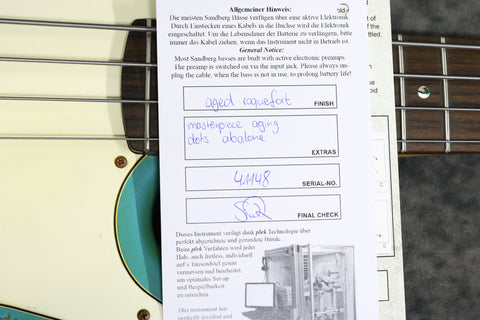 Allgemeiner Hinweis:
Die meisten Sandberg Bässe verfügen über eine aktive Elektronik.
Durch Einstecken eines Kabels in die Buchse wird die Elektronik
eingeschaltet. Um die Lebensdauer der Batterie zu verlängern, bitte
immer das Kabel ziehen, wenn das Instrument nicht in Betrieb ist
General Notice:
Most Sandberg basses are built with active electronic preamps.
The preamp is switched on via the input jack. Please always un-
plug the cable, when the bass is not in use, to prolong battery life!
aged roquefort
FINISH
masterpiece aging
dots abalone
EXTRAS
41148
SERIAL-NO.
FINAL CHECK
Dieses Instrument verfügt dank plek Technologie über
perfekt abgerichtete und gerundete Bünde.
Beim plek Verfahren wird jeder
Hals, auch fretless, individuell
auf's Tausendstel genau
vermessen und bearbeitet,
um optimales Set-up
und Bespielbarkeit
zu erreichen.
This instrument has
perfectly levelled and